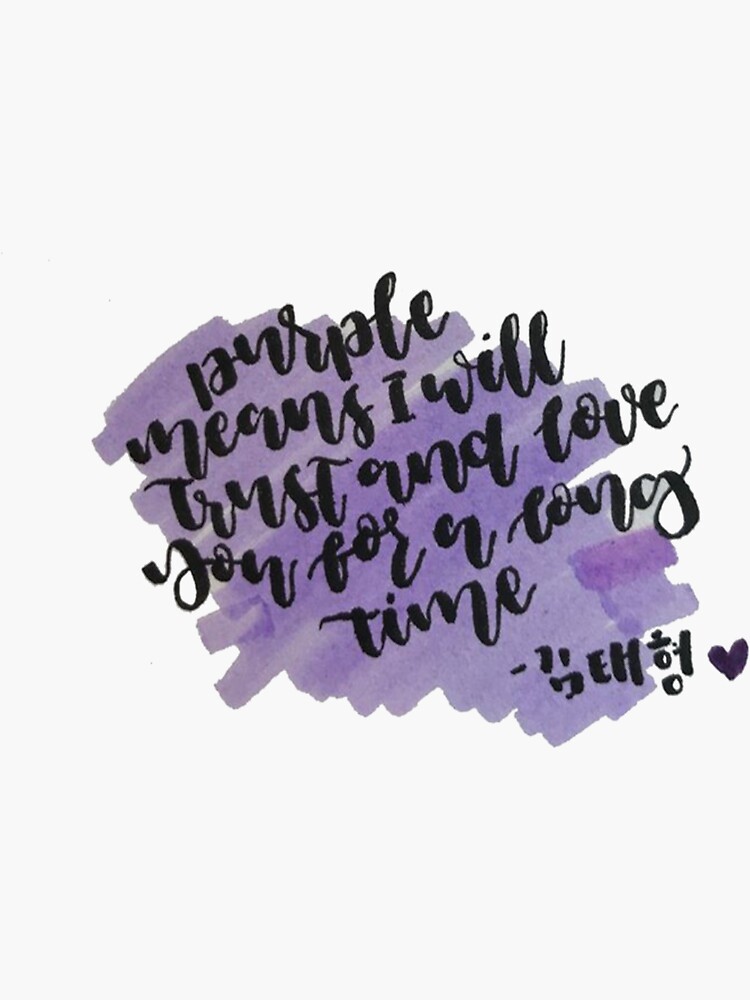 purple
means I will
trust and love
you for a long
time
-김태형